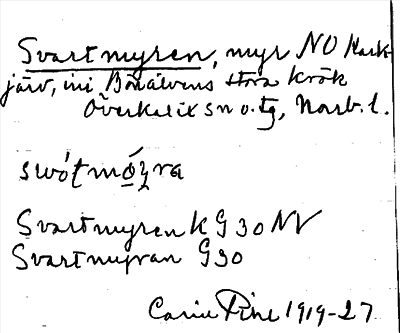 Svartmyren, myr NO Hark-
järv, ini Bönälvens stora krök
Överkalix sn o. tg, Norrb. l.
Svartmyren K G30 NV
Svartmyran G30
Carin Pihl 1919-27